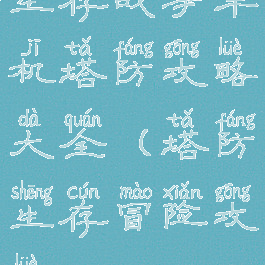 生存故事单
jī tǎ fáng gōng lüè
机塔防攻略
dà quán tǎ fáng
大全(塔防
shēng cún mào xiǎn gōng
生存冒险攻
lüè